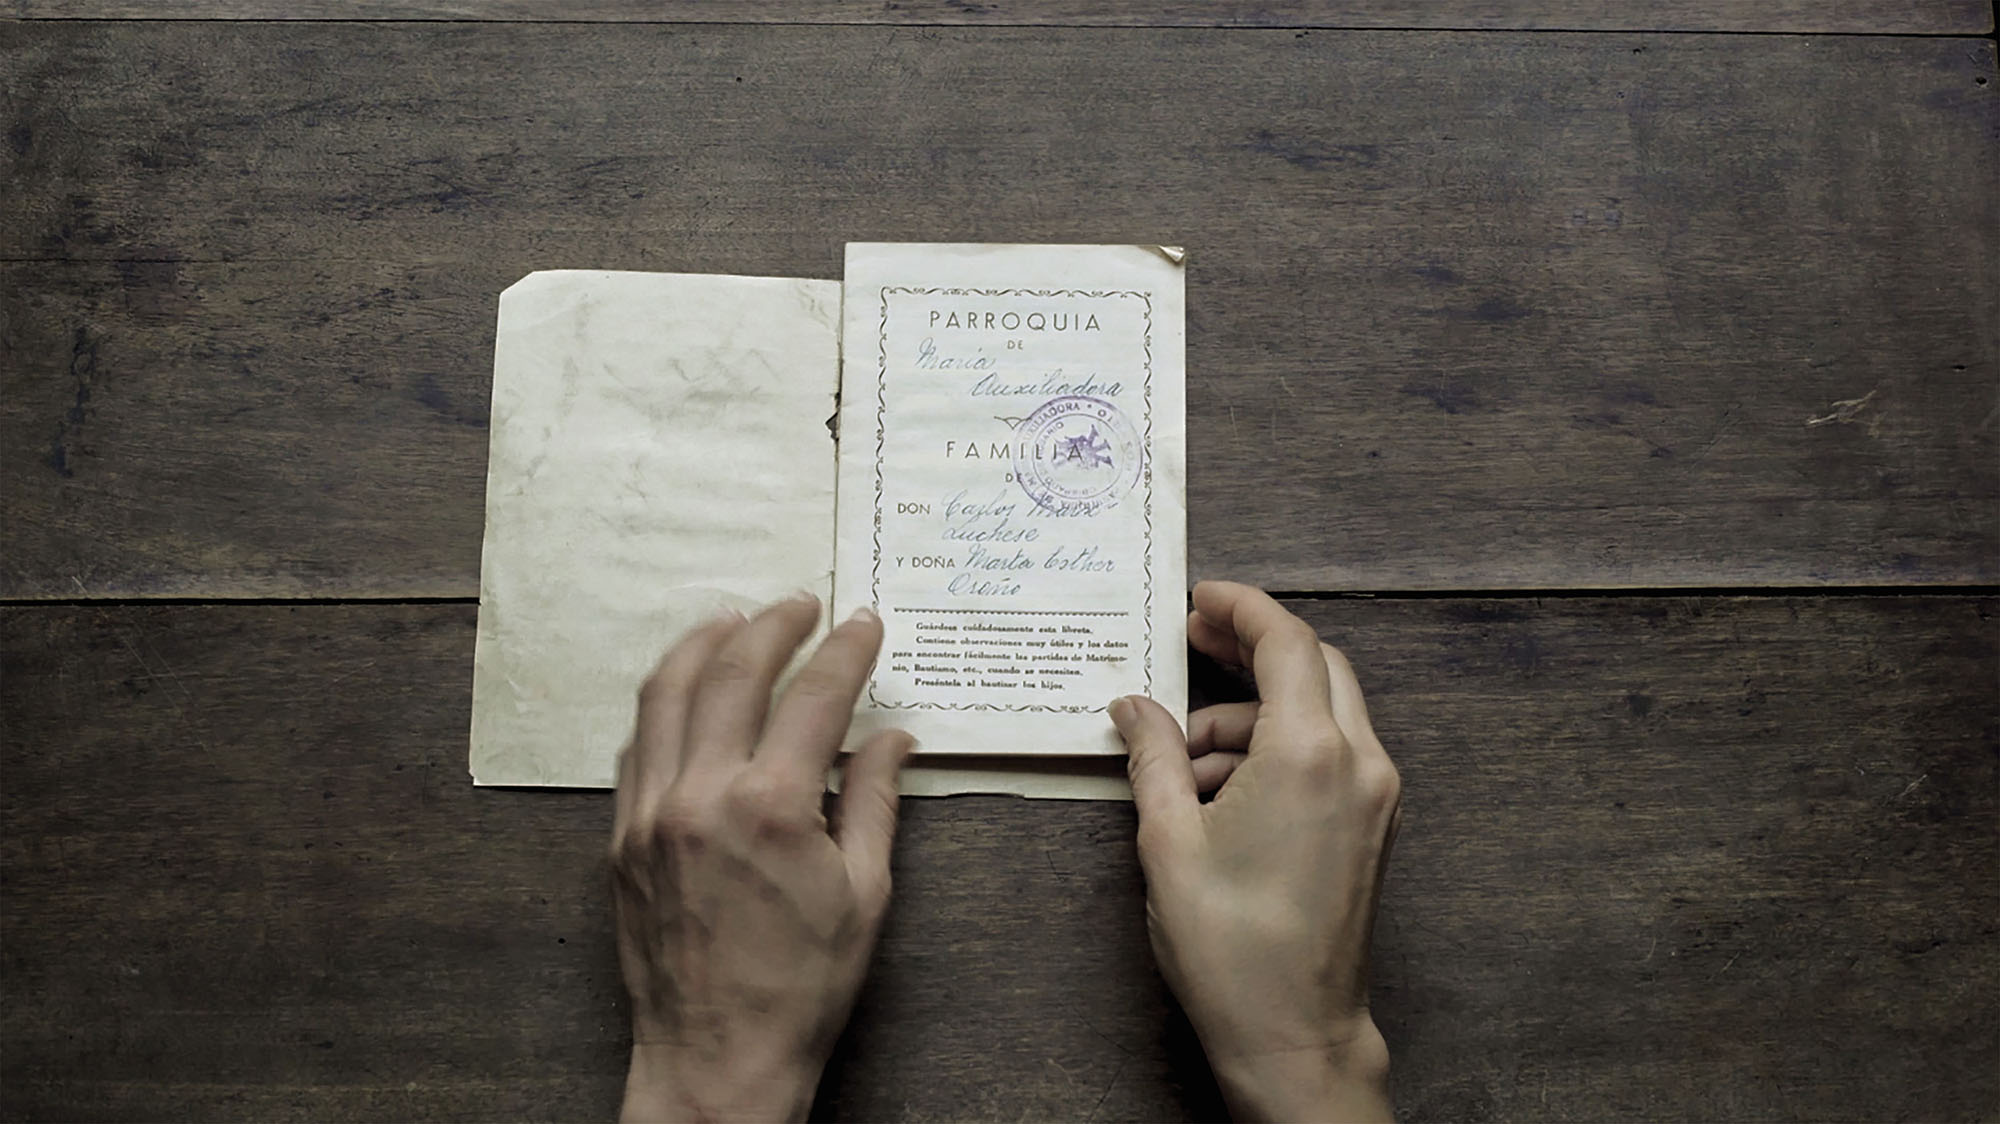 PARROQUIA
DE
Maria
Auxiliadora
FAMILIA
DE
DON Carlos Marx
Luchese
Y DOÑA Marta Esther
Oroño
Guárdese cuidadosamente esta libreta.
Contiene observaciones muy útiles y los datos
para encontrar fácilmente las partidas de Matrimo-
nio, Bautismo, etc., cuando se necesiten.
Preséntela al bautizar los hijos.